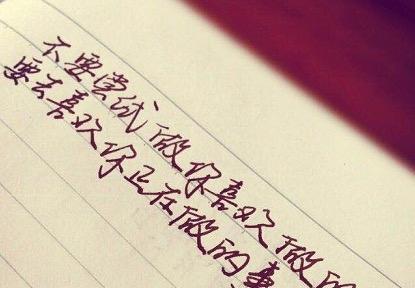 不要尝试做你喜欢做的
要去喜欢你正在做的事